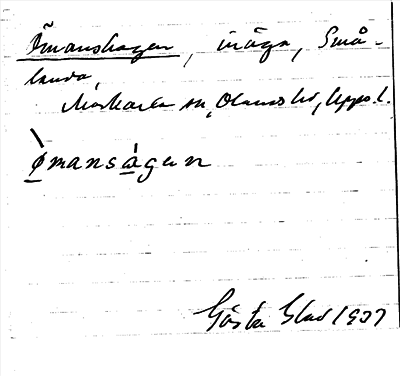 Ömanshagen, inäga, Små-
landa,
Morkarla sn, Olands hd, Upps. l.
ømansàgen
Gösta Glad 1937